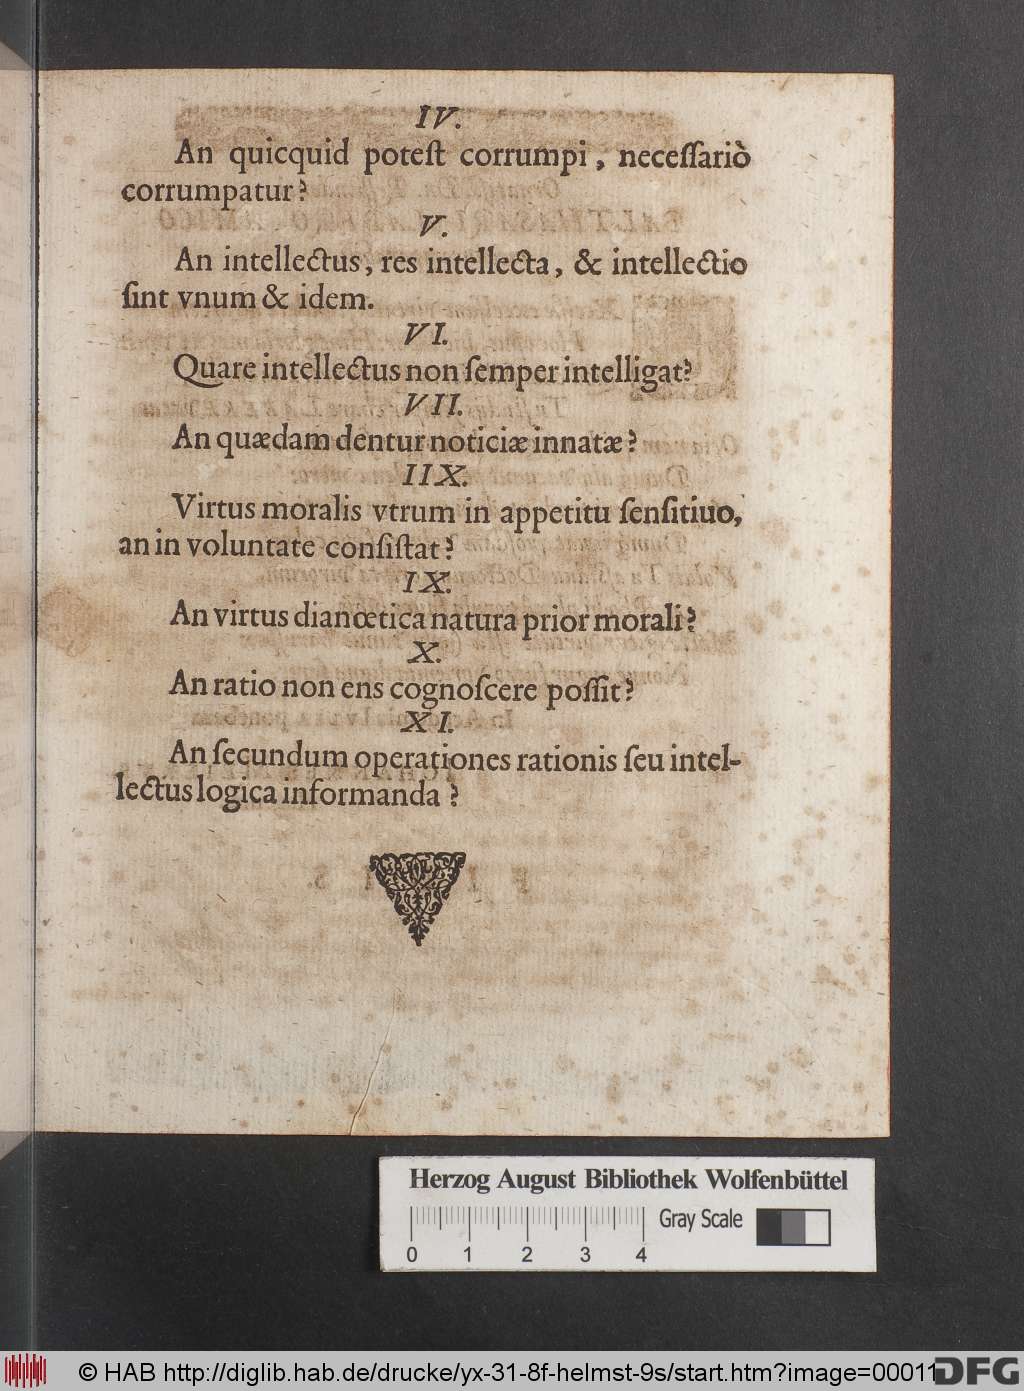 IV.
An quicquid poteſt corrumpi, neceſſariò
corrumpatur?
V.
An intellectus, res intellecta, & intellectio
ſint vnum & idem.
VI.
Quare intellectus non ſemper intelligat?
VII.
An quædam dentur noticiæ innatæ?
IIX.
Virtus moralis vtrum in appetitu ſenſitiuo,
an in voluntate conſiſtat?
IX.
An virtus dianœtica natura prior morali?
X.
An ratio non ens cognoſcere poſſit?
XI.
An ſecundum operationes rationis ſeu intel-
lectus logica informanda?
Herzog August Bibliothek Wolfenbüttel
Gray Scale
0 1 2 3 4
© HAB http://diglib.hab.de/drucke/yx-31-8f-helmst-9s/start.htm?image=00011
DFG